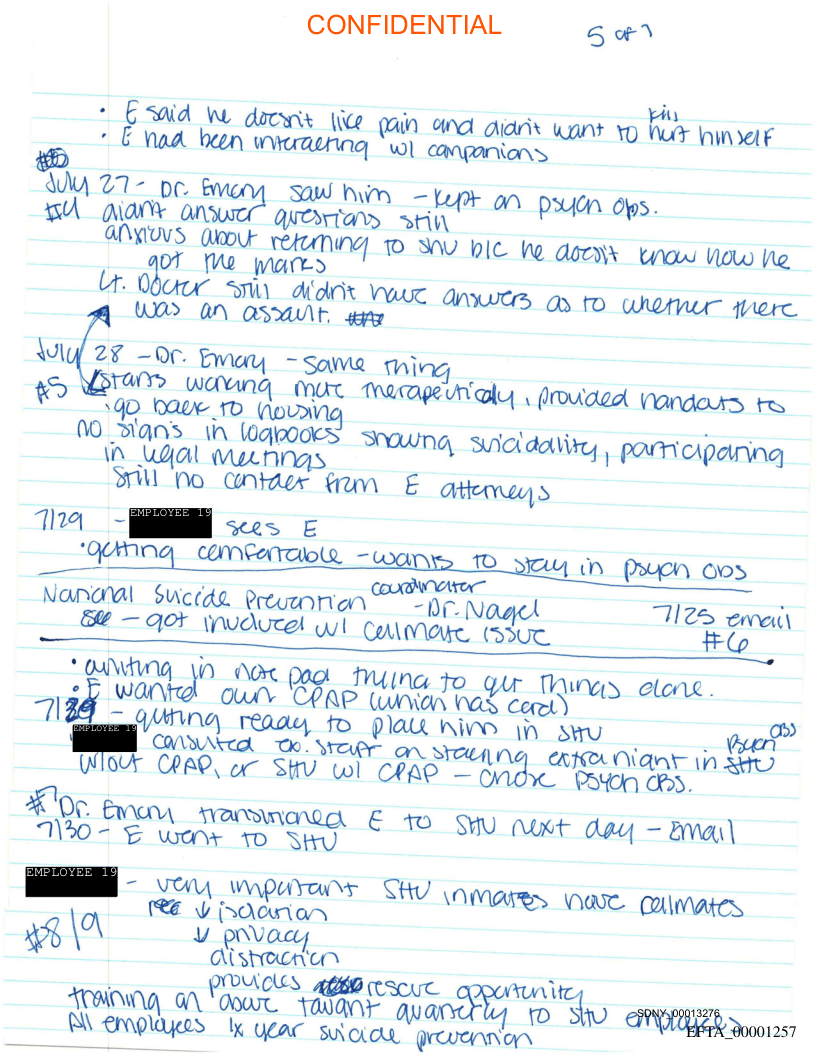 CONFIDENTIAL
5 of 7
• E said he doesn't like pain and didn't want to hurt himself
kill
• E had been interacting w/ companions
July 27 - Dr. Emery saw him - kept on psych obs.
#4 didn't answer questions still
anxious about returning to shu b/c he doesn't know how he
got the marks
Lt. Doctor still didn't have answers as to whether there
was an assault.
July 28 - Dr. Emery - same thing
#5 starts working more therapeutically, provided handouts to
• go back to housing
no signs in logbooks showing suicidality, participating
in legal meetings
Still no contact from E attorneys
7/29 - EMPLOYEE 19 sees E
• getting comfortable - wants to stay in psych obs
National Suicide Prevention coordinator
- Dr. Nagel
7/25 email
- got involved w/ cellmate issue
#6
• writing in note pad trying to get things done.
• E wanted own CPAP (which has cord)
7/29 - getting ready to place him in SHU
EMPLOYEE 19 consulted ex. staff on staying extra night in SHU
Psych obs
w/out CPAP, or SHU w/ CPAP - chose psych obs.
#7 Dr. Emery transitioned E to SHU next day - Email
7/30 - E went to SHU
EMPLOYEE 19 - very important SHU inmates have cellmates
↓ isolation
#8/9
↓ privacy
distraction
provides rescue opportunity
training on above quarterly to SHU employees
All employees 1x year suicide prevention
SDNY_00013276
EFTA_00001257